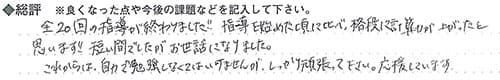 ◆総評 ※良くなった点や今後の課題などを記入して下さい。
全20回の指導が終わりました!! 指導を始めた頃に比べ、格段に計算力が上がったと
思います!! 短い間でしたがお世話になりました。
これからは、自力で勉強しなくてはいけませんが、しっかり頑張って下さい。応援しています。